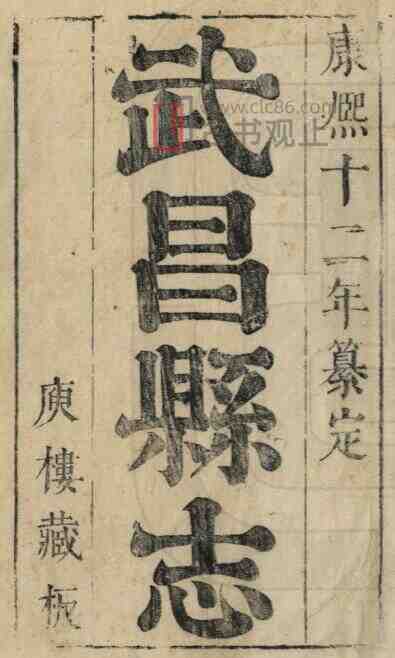 康熈十二年纂定
武昌縣志
庾樓藏板
www.clc86.com
书观止